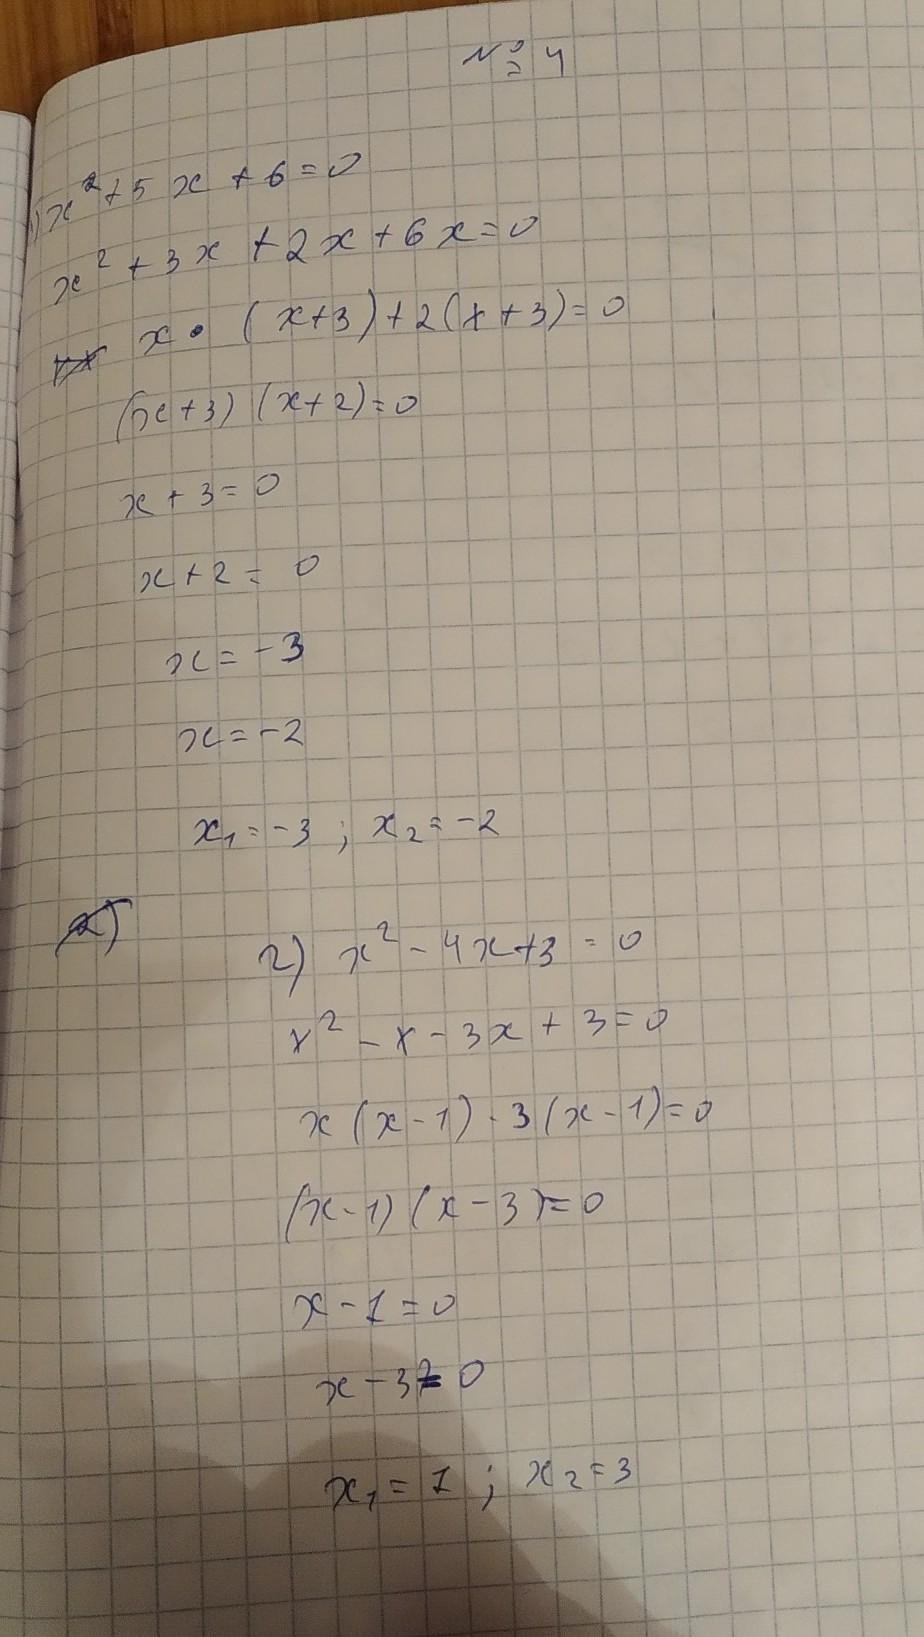 № 4
1) x² + 5x + 6 = 0
x² + 3x + 2x + 6x = 0
x • (x+3) + 2(x+3) = 0
(x+3) (x+2) = 0
x + 3 = 0
x + 2 = 0
x = -3
x = -2
x₁ = -3 ; x₂ = -2
2) x² - 4x + 3 = 0
x² - x - 3x + 3 = 0
x (x - 1) - 3 (x - 1) = 0
(x - 1) (x - 3) = 0
x - 1 = 0
x - 3 = 0
x₁ = 1 ; x₂ = 3